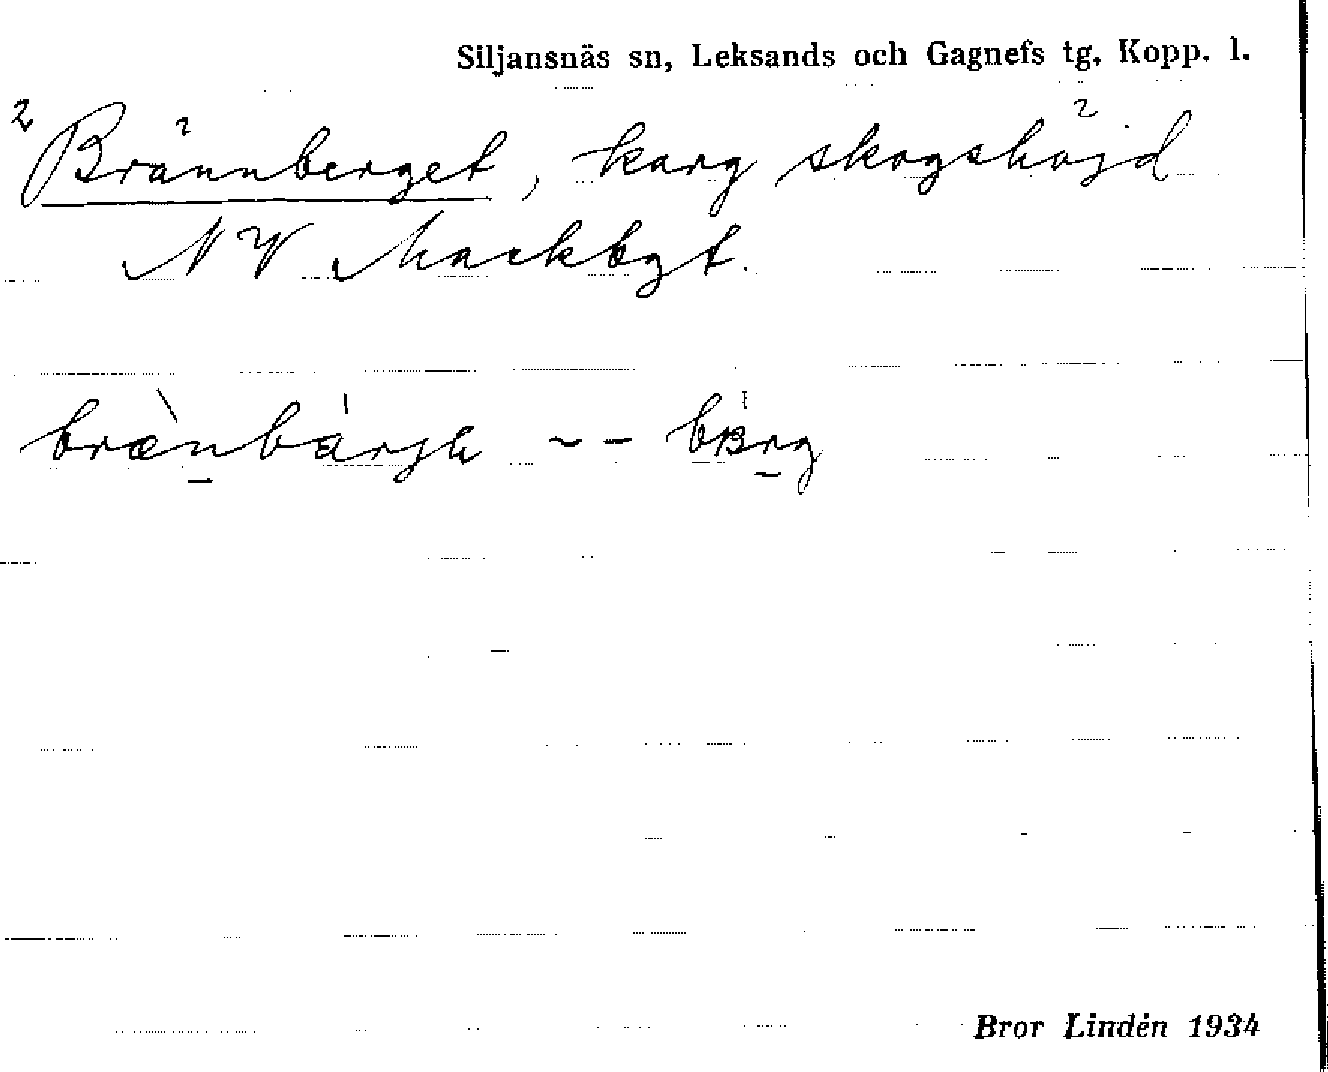 Siljansnäs sn, Leksands och Gagnefs tg. Kopp. l.
2 Brännberget, karg skogshöjd
NV Mackbgt.
brænbärjh ~ – bärg
Bror Lindén 1934